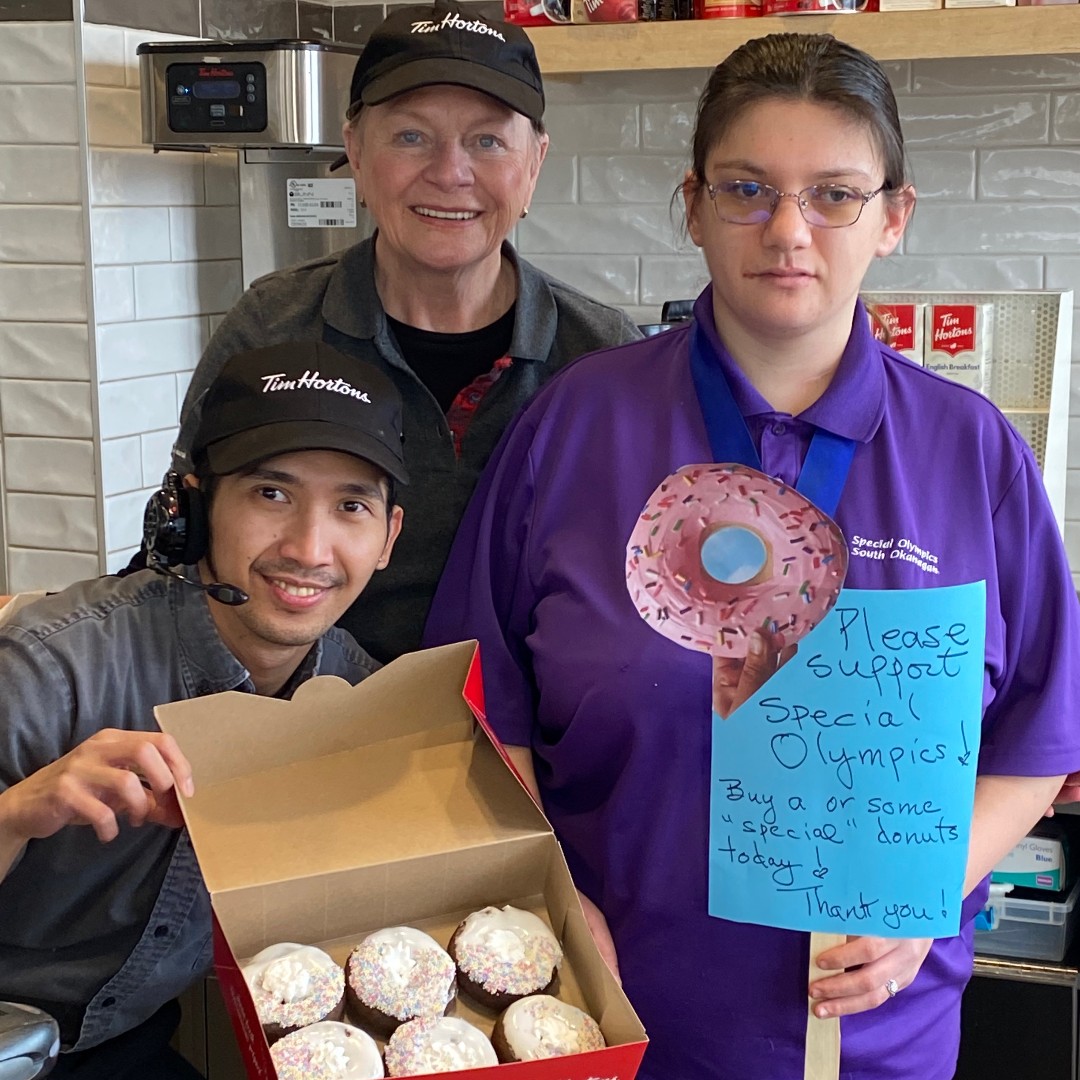 Tim Hortons
Tim Hortons
BUNN
Tim Hortons
Tim
Hortons
Tim
Hortons
English Breakfast
Special Olympics
South Okanagan
Please
support
Special
Olympics!
Buy a or some
"special" donuts
today!
Thank you!
Gloves
Blue